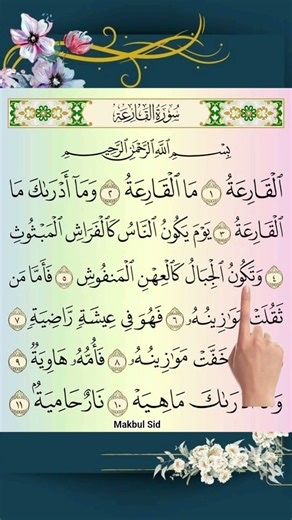 سُورَةُ القَارِعَةِ
بِسْمِ ٱللَّهِ ٱلرَّحْمَٰنِ ٱلرَّحِيمِ
ٱلْقَارِعَةُ ١ مَا ٱلْقَارِعَةُ ٢ وَمَآ أَدْرَىٰكَ مَا
ٱلْقَارِعَةُ ٣ يَوْمَ يَكُونُ ٱلنَّاسُ كَٱلْفَرَاشِ ٱلْمَبْثُوثِ
٤ وَتَكُونُ ٱلْجِبَالُ كَٱلْعِهْنِ ٱلْمَنفُوشِ ٥ فَأَمَّا مَن
ثَقُلَتْ مَوَٰزِينُهُۥ ٦ فَهُوَ فِى عِيشَةٍ رَّاضِيَةٍ ٧
خَفَّتْ مَوَٰزِينُهُۥ ٨ فَأُمُّهُۥ هَاوِيَةٌ ٩
أَدْرَىٰكَ مَا هِيَهْ ١٠ نَارٌ حَامِيَةٌۢ ١١
Makbul Sid